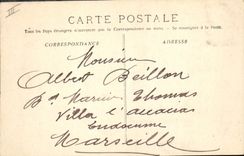 CARTE POSTALE
Tous les Pays étrangers n'acceptent pas la Correspondance au recto. - Se renseigner à la Poste.
CORRESPONDANCE
ADRESSE
Monsieur
Albert Beillon
Bd Marius Thomas
Villa l'acacias
Endoume
Marseille